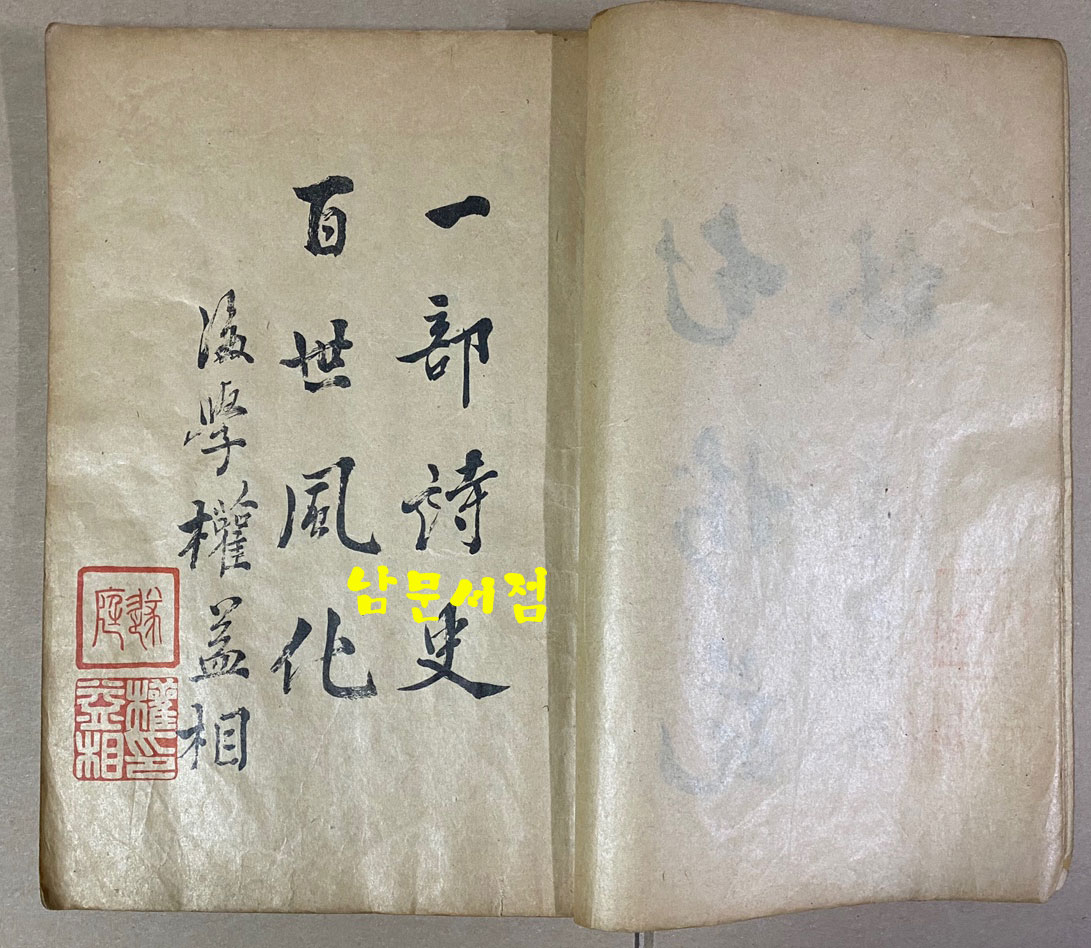 一部詩史
百世風化
後學權益相
權益相印
남문서점